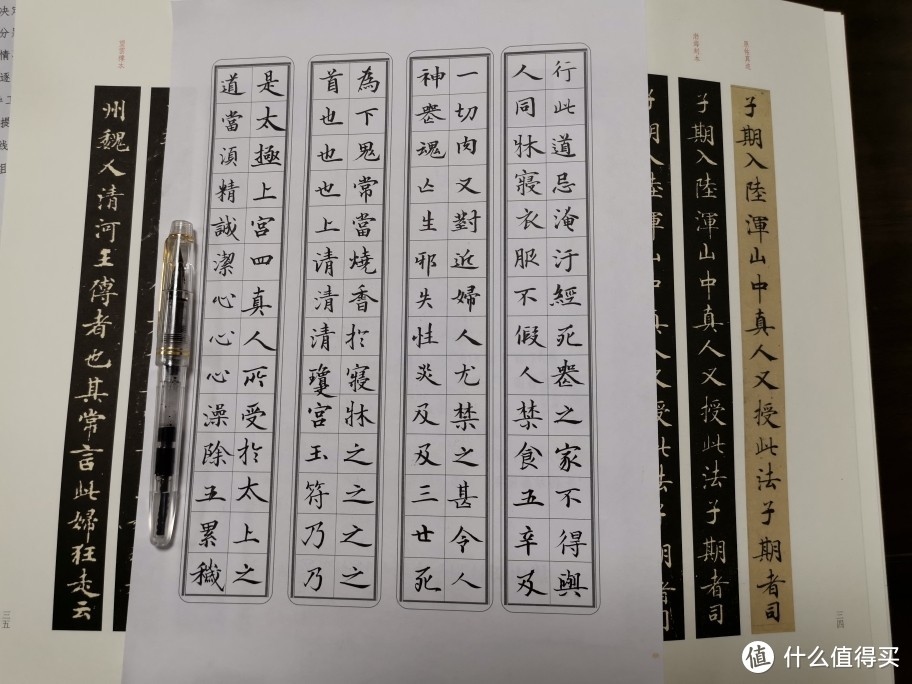 子期入陸渾山中真人又授此法子期者司
子期入陸渾山中真人又授此法子期者司
三四
行此道忌淹汙經死喪之家不得與
人同牀寢衣服不假人禁食五辛及
一切肉又對近婦人尤禁之甚令人
神喪魂亡生邪失性災及及三世死
為下鬼常當燒香於寢牀之之之之
首也也也上清清清瓊宮玉符乃乃
是太極上宮四真人所受於太上之
道當湏精誠潔心心心澡除五累穢
州魏人清河王傳者也其常言此婦狂走云
三五
值 什么值得买